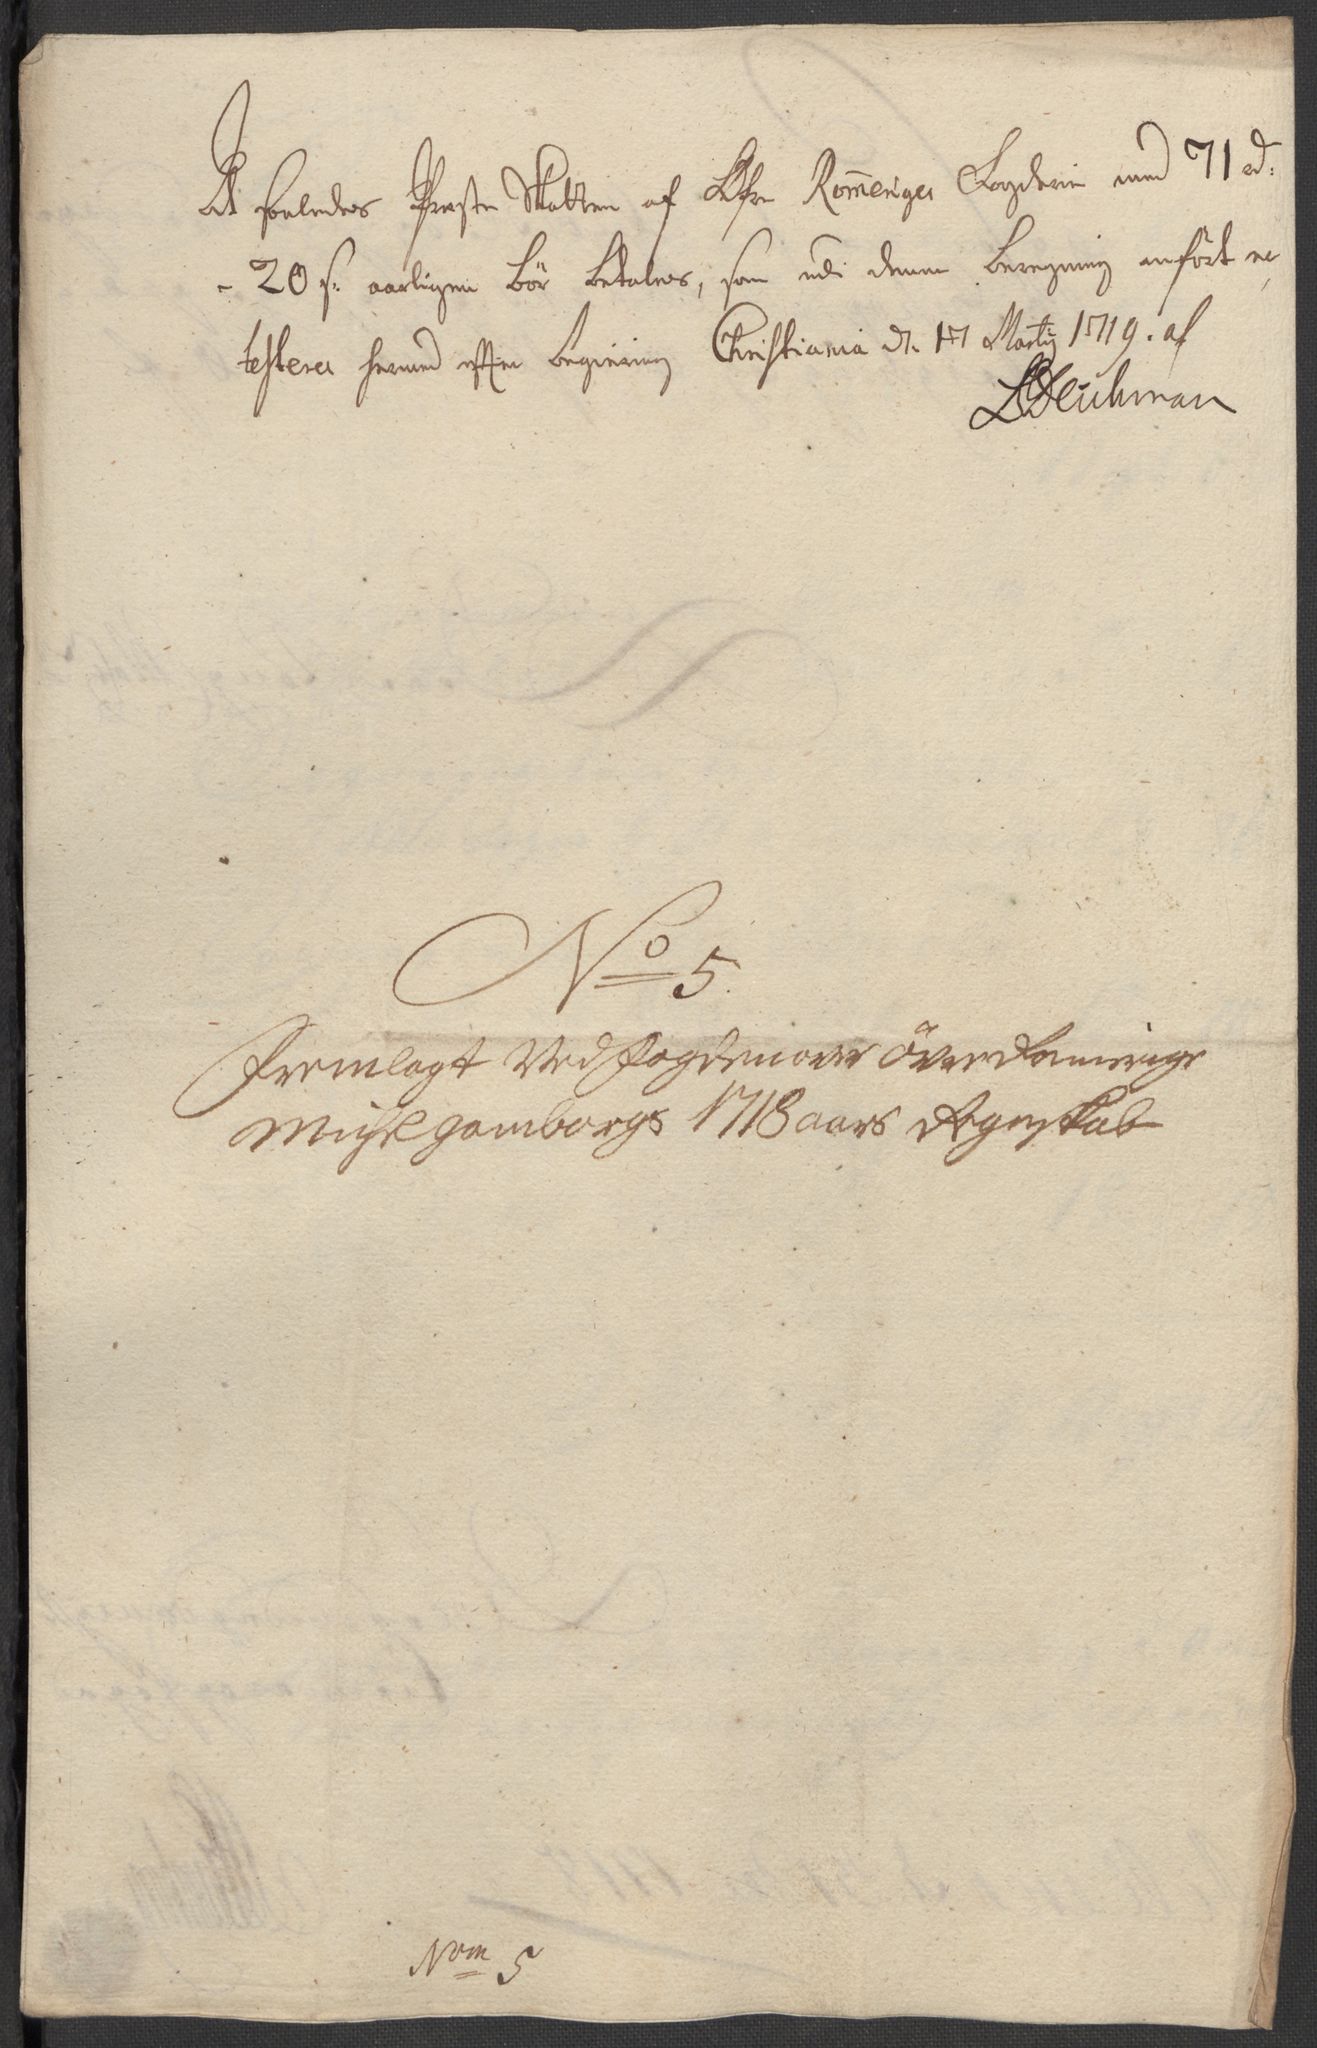 At saaledes Præste Skatten af Øfre Rommeriges Fogderie med 71 rd:
- 20 s: aarligen bör betales, som udi denne Beregning anfört er,
testeres hermed effter begiering Christiania d. 17 Martij 1719. af
Deichman
No 5.
Fremlagt Ved fogden over Öwre Romerige
Michel gamborgs 1718 aars Regenskab
Nom 5